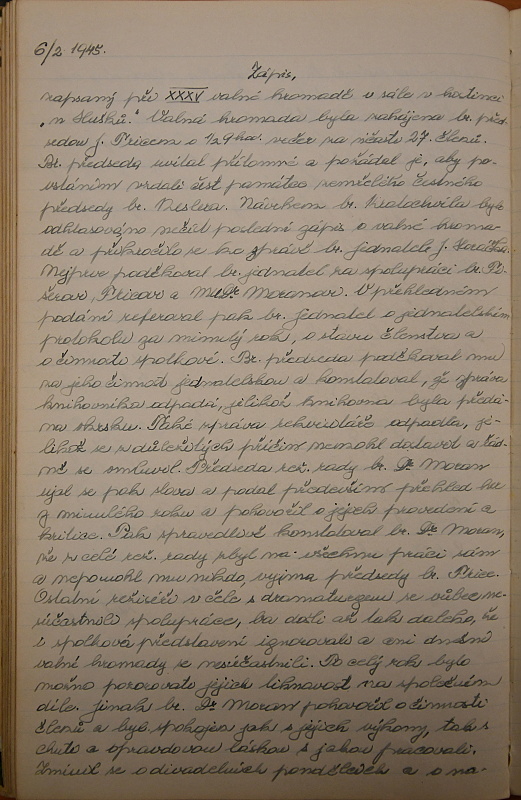 6/2 1945.
Zápis,
zapsaný při XXXV valné hromadě v sále v hostinci
"u Slušků." Valná hromada byla zahájena br. před-
sedou J. Pricem o 1/2 9 hod. večer za účasti 27. členů.
Br. předseda uvítal přítomné a požádal je, aby po-
vstáním vzdali čest památce zemřelého čestného
předsedy br. Návrhem br. Kratochvíla bylo
odhlasováno nečísti poslední zápis o valné hroma-
dě a přikročilo se ke zprávě br. jednatele J.
Nejprve poděkoval br. jednatel za spolupráci br.
Pricovi a MUDr Moranovi. V přehledném
podání referoval pak br. jednatel o jednatelském
protokolu za minulý rok, o stavu členstva a
o činnosti spolkové. Br. předseda poděkoval mu
za jeho činnost jednatelskou a konstatoval, že zpráva
knihovníka odpadá, jelikož knihovna byla předá-
na Také zpráva rekvisitáře odpadla, je-
likož se z důležitých příčin nemohl dostavit a řád-
ně se omluvil. Předseda rež. rady br. Dr Moran
ujal se pak slova a podal především přehled her
z minulého roku a pohovořil o jejich provedení a
kritice. Pak spravedlivě konstatoval br. Dr Moran,
že z celé rež. rady zbyl na všechnu práci sám
a nepomohl mu nikdo, vyjma předsedy br. Price.
Ostatní režiséři v čele s dramaturgem se vůbec ne-
súčastnili spolupráce, ba došli až tak daleko, že
i spolková představení ignorovali a ani dnešní
valné hromady se nesúčastnili. Po celý rok bylo
možno pozorovati jejich liknavost na společném
díle. Jinak br. Dr Moran pohovořil o činnosti
členů a byl spokojen jak s jejich výkony, tak s
chutí a opravdovou láskou s jakou pracovali.
Zmínil se o divadelních pondělcích a o na-